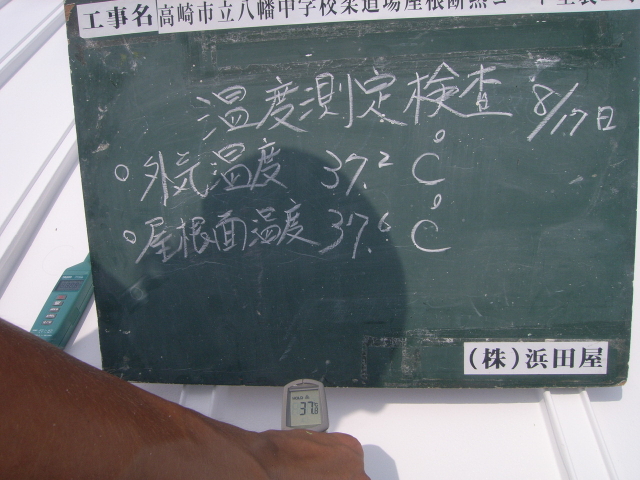 工事名 高崎市立八幡中学校柔道場屋根断熱コート塗装工事
温度測定検査 8/17日
○外気温度 37.2℃
○屋根面温度 37.6℃
(株)浜田屋
37.6